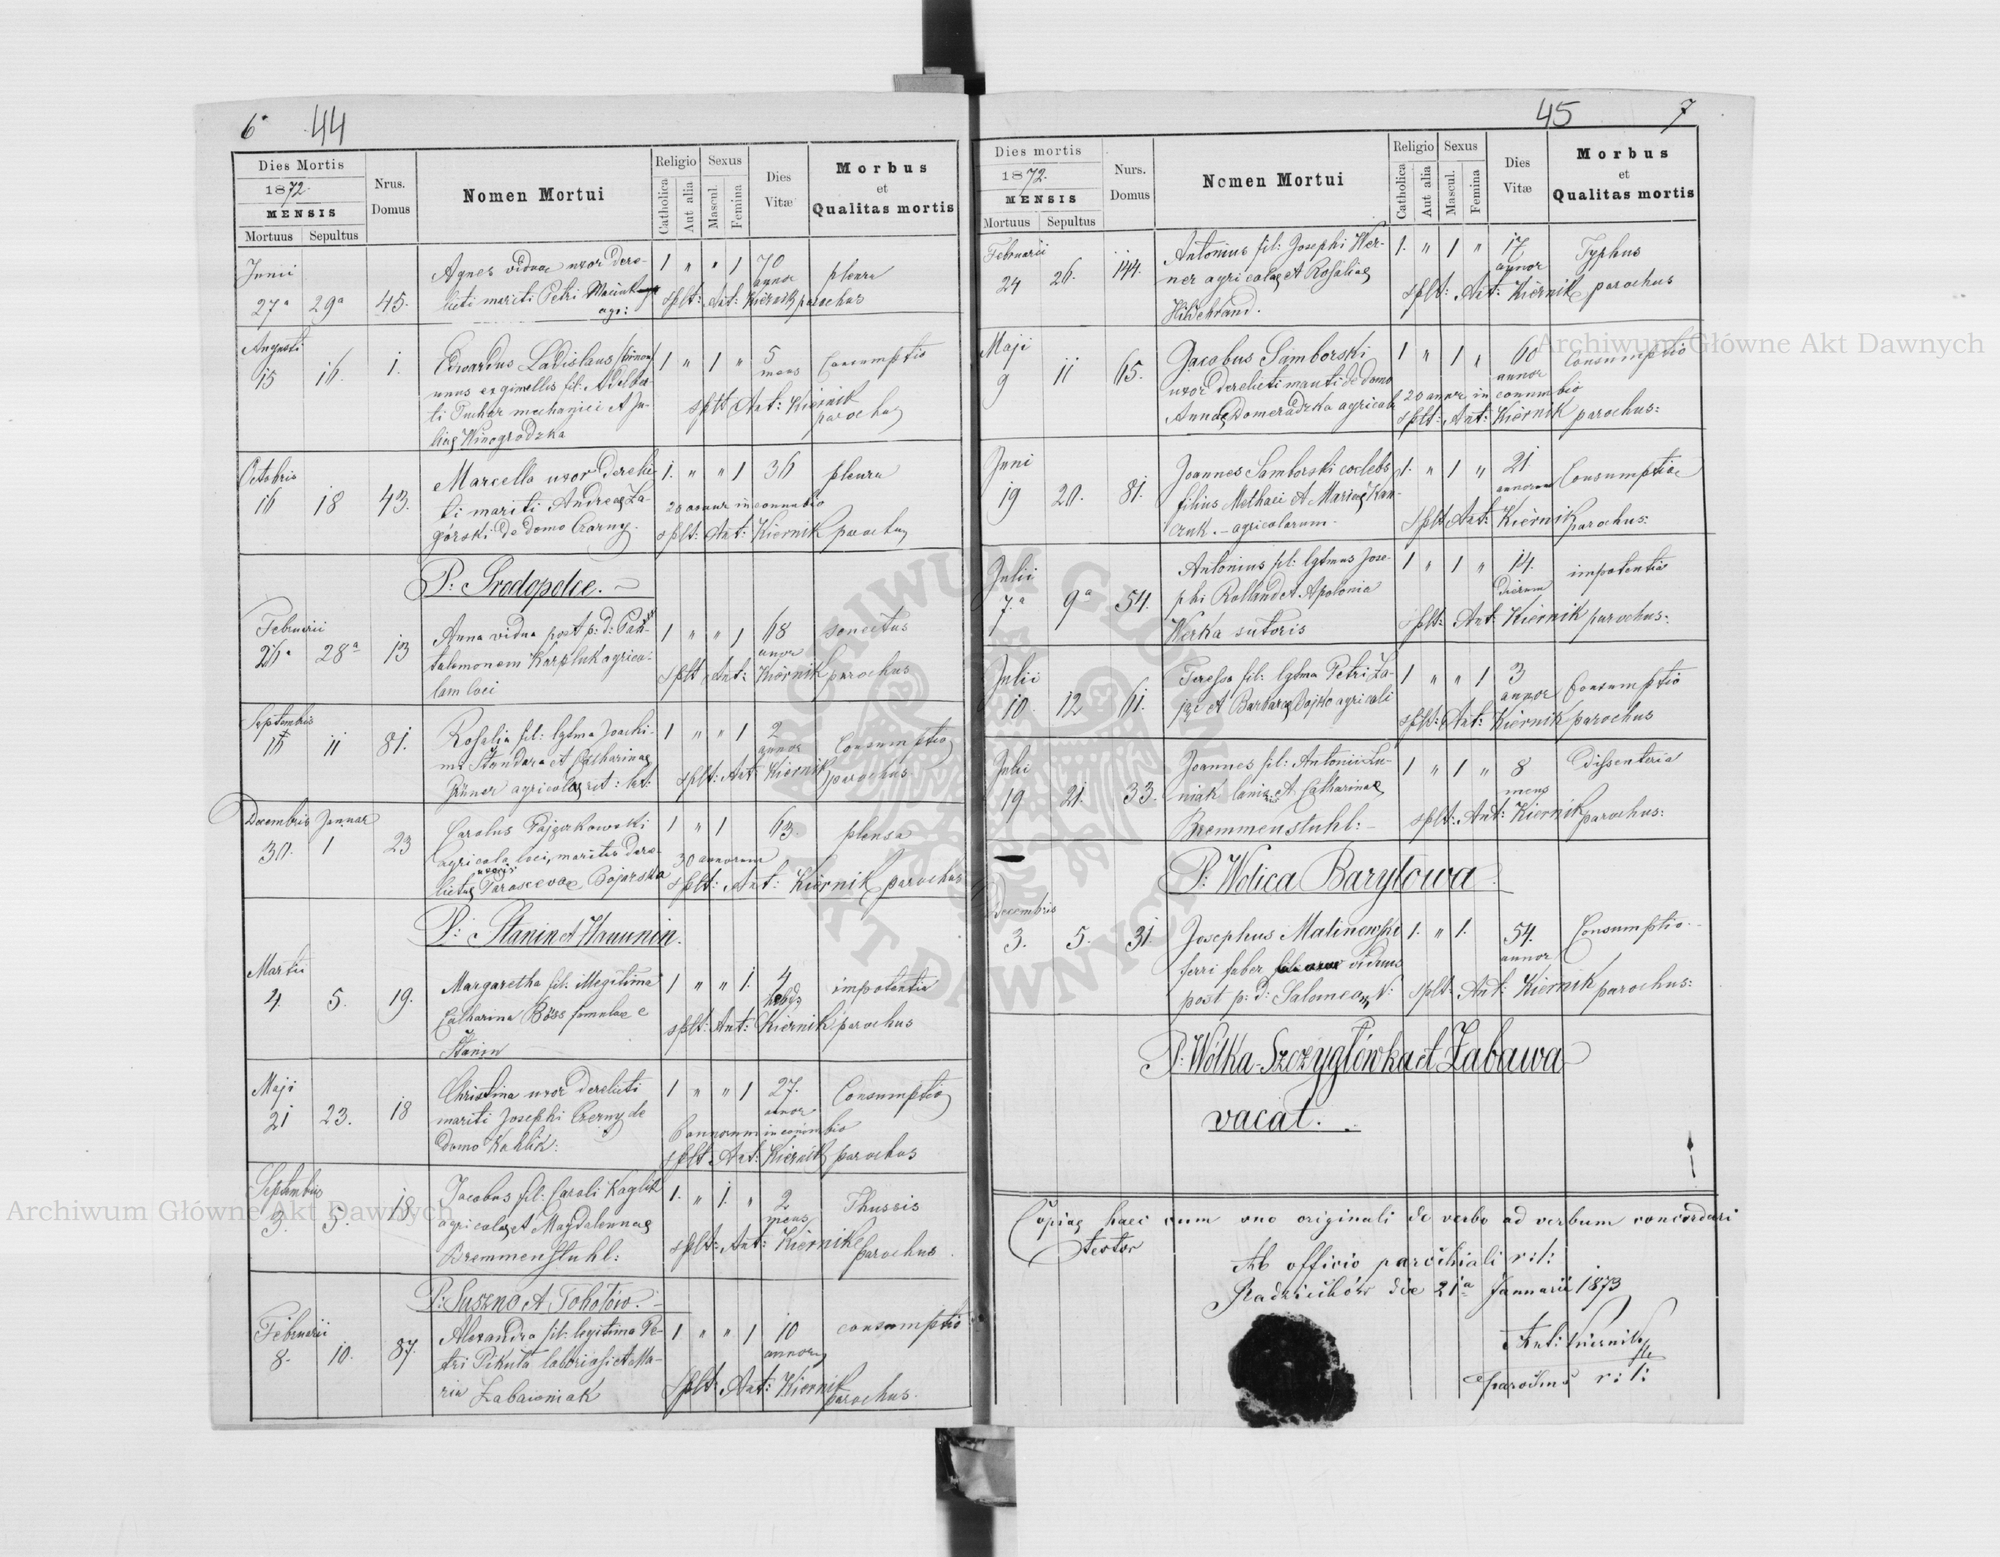 6 44
Dies Mortis
1872.
MENSIS
Mortuus Sepultus
Nrus. Domus
Nomen Mortui
Religio
Catholica
Aut alia
Sexus
Mascul.
Femina
Dies Vitæ
Morbus
et
Qualitas mortis
Junii
27a 29a 45.
Agnes vidua uxor dere-
licti mariti Petri
agr:
1 " " 1 70 annor pleura
splt: Ant: Kiernik parochus
Augusti
15 16. 1.
Edvardus Ladislaus
unus ex gimellis fil: Adelber-
ti Puchar mechanici et Ju-
liae Winogrodzka
1 " 1 " 5 mens Consumptio
splt Ant: Kiernik parochus
Octobris
16 18 43.
Marcella uxor derelic-
ti mariti Andreae Za-
górski de domo Czarny.
1. " " 1 36 pleura
20 annor in connubio
splt: Ant: Kiernik parochus
P: Srodopolce.
Februarii
26a 28a 13
Anna vidua post p: d: Pan-
talemonem Karpluk agrico-
lam loci
1 " " 1 68 annor senectus
splt Ant: Kiernik parochus
Septembris
10 11 81.
Rosalia fil: lgtma Joachi-
mi Standara et Catharinae
Grüner agricolae rit: lat:
1 " " 1 2 annor Consumptio
splt: Ant: Kiernik parochus
Decembris Januar
30. 1 23
Carolus Pajączkowski
agricola loci, maritus dere-
lictae uxoris Parascevae Bojarska
1 " 1 63. pleura
30 annorum
splt: Ant: Kiernik parochus
P: Stanin et Hanunin.
Martii
4 5. 19.
Margaretha fil: illegitima
Catharina Böss famulae e
Stanin
1 " " 1. 4 hebdz impotentia
splt: Ant: Kiernik parochus
Maji
21 23. 18
Christina uxor derelicti
mariti Josephi Czerny de
domo Kahlik:
1 " " 1 27. annor Consumptio
6 annorum in connubio
splt Ant: Kiernik parochus
Septembris
3. 5. 18.
Jacobus fil: Caroli Kaglik
agricolae et Magdalennae
Bremmenstuhl:
1. " 1. " 2 mens Thussis
splt: Ant: Kiernik parochus
P: Suszno et Tobołów.
Februarii
8. 10. 87.
Alexandra fil: legitima Pe-
tri Pikuta laboriosi et Ma-
ria Zabawniak
1 " " 1 10 annor consumptio
splt: Ant: Kiernik parochus.
45 7
Dies mortis
1872.
MENSIS
Mortuus Sepultus
Nurs. Domus
Nomen Mortui
Religio
Catholica
Aut alia
Sexus
Mascul.
Femina
Dies Vitæ
Morbus
et
Qualitas mortis
Februarii
24 26. 144.
Antonius fil: Josephi Wer-
ner agricolae et Rosaliae
Hildebrand.
1. " 1 " 17 annor Typhus
splt: Ant: Kiernik parochus
Maji
9 11 65.
Jacobus Samborski
uxor derelicti mariti de domo
Annae Domeradzka agricola
1 " 1 " 60 annor Consumptio
20 annor in connubio
splt: Ant: Kiernik parochus:
Juni
19 20. 81.
Joannes Samborski coelebs
filius Mathaei et Mariae Kan-
czuk. - agricolarum.
1. " 1 " 21 annorum Consumptio
splt Ant: Kiernik parochus:
Julii
7.a 9a 54.
Antonius fil: lgtmus Jose-
phi Rolland et Apolonia
Werka sutoris
1 " 1 " 14. dierum impotentia
splt: Ant: Kiernik parochus:
Julii
10. 12 61.
Teressa fil: lgtma Petri Za-
jąc et Barbarae Bojko agricoli
1 " " 1 3 annor Consumptio
splt: Ant: Kiernik parochus
Julii
19 21. 33.
Joannes fil: Antonii Lu-
niak lanio et Catharinae
Bremmenstuhl:
1 " 1 " 8 mens Dissenteria
splt: Ant: Kiernik parochus:
P: Wolica Baryłowa.
Decembris
3. 5. 31.
Josephus Malinowski
ferri faber viduus
post p: d: Salomeam N:
1. " 1. 54. annor Consumptio.
splt: Ant: Kiernik parochus:
P: Wólka-Szczygłówka et Zabawa
vacat.
Copiae haec cum uno originali de verbo ad verbum concordari
testor
Ab officio parochiali r: l:
Radziechów die 21a Januarii 1873
Ant: Kiernik
parochus r: l:
Archiwum Główne Akt Dawnych
Archiwum Główne Akt Dawnych
ARCHIWUM GŁÓWNE AKT DAWNYCH